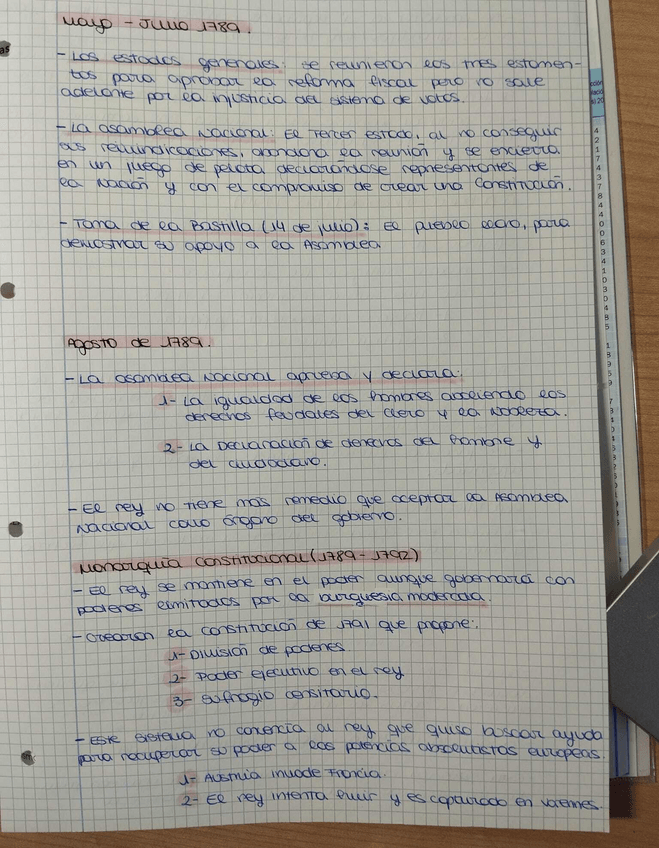 Mayo - Junio 1789.
- Los estados generales: se reunieron los tres estamen-
tos para aprobar la reforma fiscal pero no sale
adelante por la injusticia del sistema de votos.
- La asamblea Nacional: El Tercer estado, al no conseguir
sus reivindicaciones, abandona la reunión y se encierra
en un juego de pelota declarándose representantes de
la Nación y con el compromiso de crear una Constitución.
- Toma de la Bastilla (14 de julio): El pueblo, para
demostrar su apoyo a la Asamblea
Agosto de 1789.
- La asamblea Nacional aprueba y declara:
1- La igualdad de los hombres aboliendo los
derechos feudales del clero y la nobleza.
2- La Declaración de derechos del hombre y
del ciudadano.
- El rey no tiene más remedio que aceptar la Asamblea
Nacional como órgano del gobierno.
Monarquía Constitucional (1789 - 1792)
- El rey se mantiene en el poder aunque gobernará con
poderes limitados por la burguesía moderada.
- Crearon la constitución de 1791 que propone:
1- División de poderes.
2- Poder ejecutivo en el rey
3- Sufragio censitario.
- Este sistema no convencía al rey que quiso buscar ayuda
para recuperar su poder a las potencias absolutistas europeas.
1- Austria invade Francia.
2- El rey intenta huir y es capturado en Varennes.